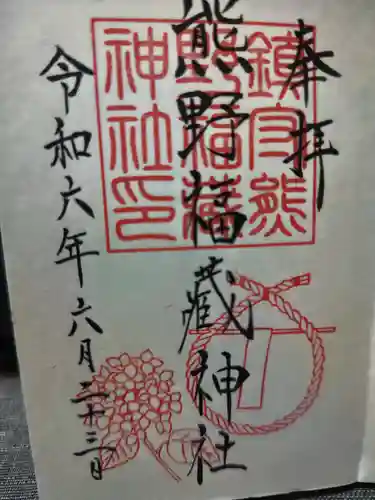 奉拝
熊野福藏神社
令和六年六月二十三日
鎮守熊野福藏神社印